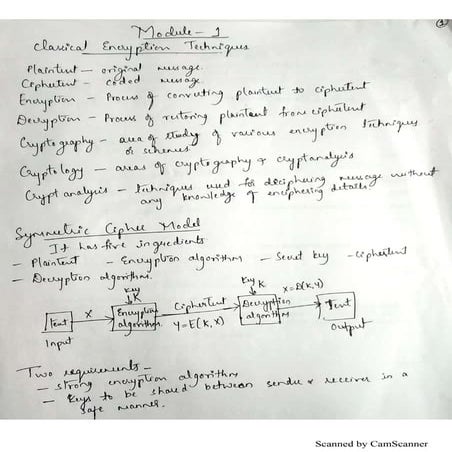 ①
Module - 1
Classical Encryption Techniques
Plaintext - original message.
Ciphertext - coded message.
Encryption - Process of converting plaintext to ciphertext
Decryption - Process of restoring plaintext from ciphertext
Cryptography - area of study of various encryption techniques
or schemes
Cryptology - areas of cryptography & cryptanalysis
Cryptanalysis - techniques used for deciphering message without
any knowledge of enciphering details
Symmetric Cipher Model
It has five ingredients
- Plaintext - Encryption algorithms - Secret key - ciphertext
- Decryption algorithms.
Key K
Key K
Text
X
Encryption algorithms.
Ciphertext
Y=E(K,X)
Decryption algorithms
X=D(K,Y)
Text
Input
Output
Two requirements -
- strong encryption algorithm
- Keys to be shared between sender & receiver in a
safe manner.
Scanned by CamScanner